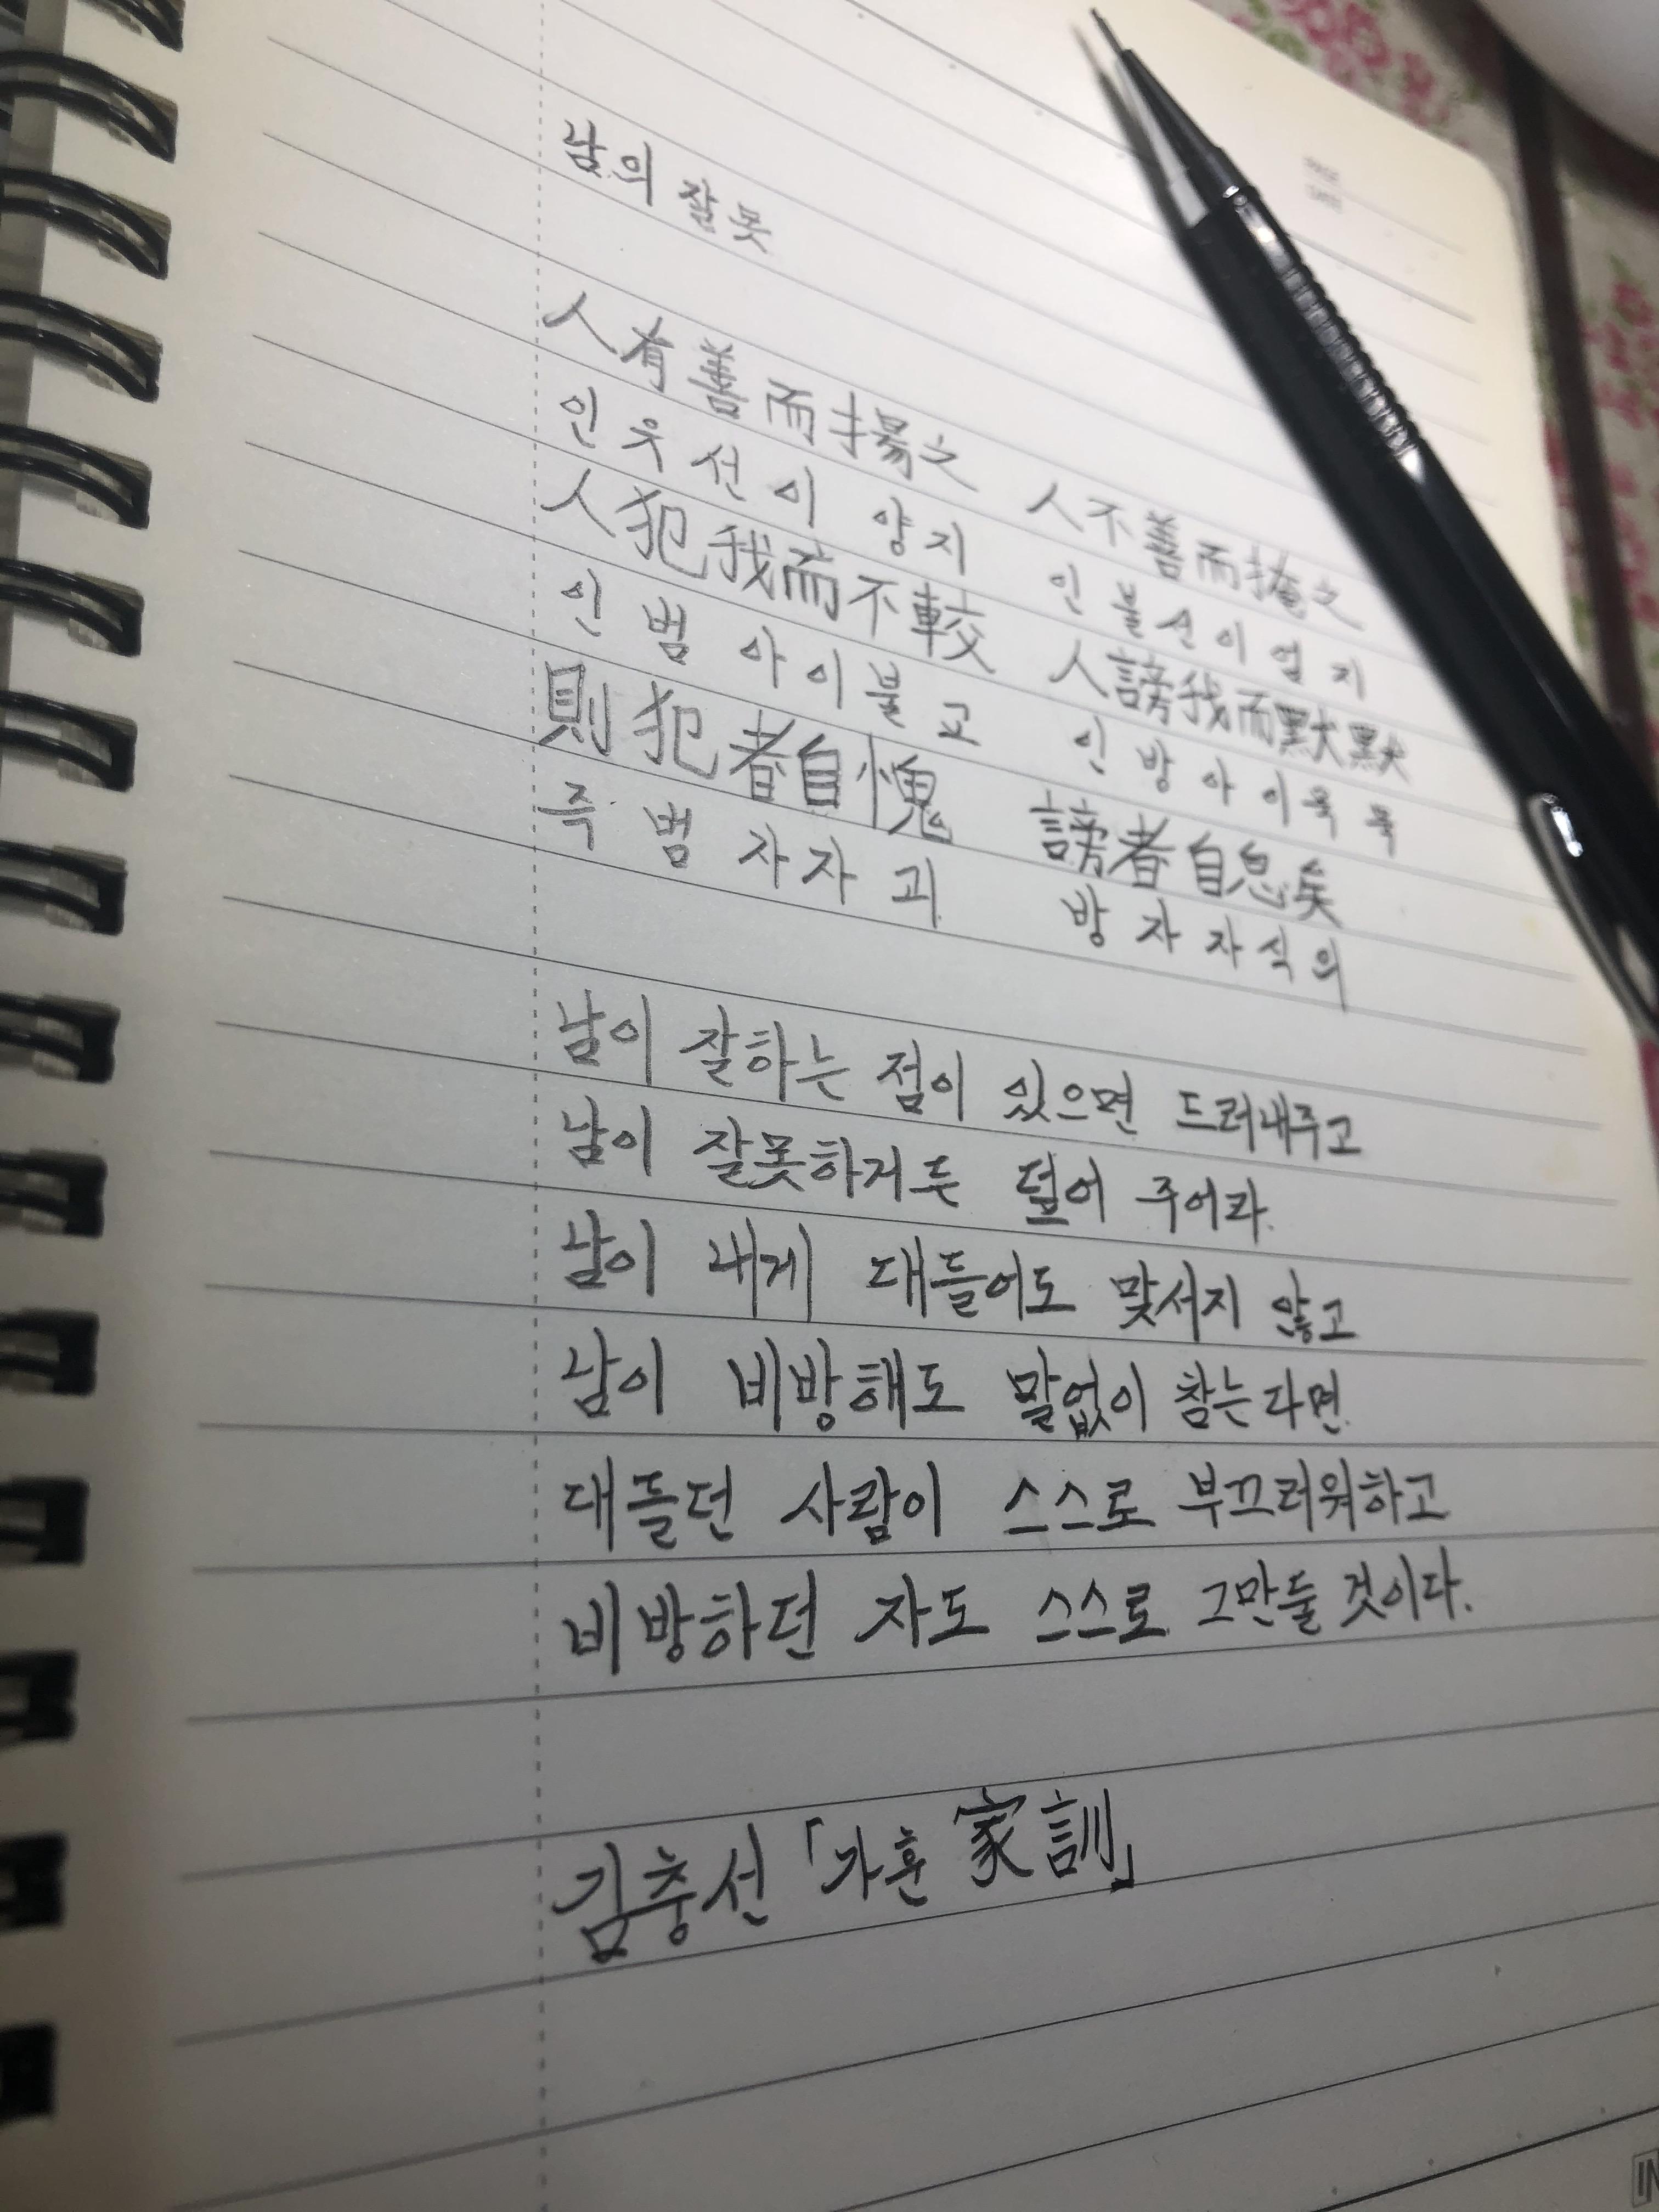 남의 잘못
人有善而揚之 人不善而掩之
인 우 선 이 양 지 인 불 선 이 엄 지
人犯我而不較 人謗我而默默
인 범 아 이 불 교 인 방 아 이 묵 묵
則犯者自愧 謗者自息矣
즉 범 자 자 괴 방 자 자 식 의
남이 잘하는 점이 있으면 드러내주고
남이 잘못하거든 덮어 주어라.
남이 내게 대들어도 맞서지 않고
남이 비방해도 말없이 참는다면.
대들던 사람이 스스로 부끄러워하고
비방하던 자도 스스로 그만둘 것이다.
김충선 「가훈 家訓」